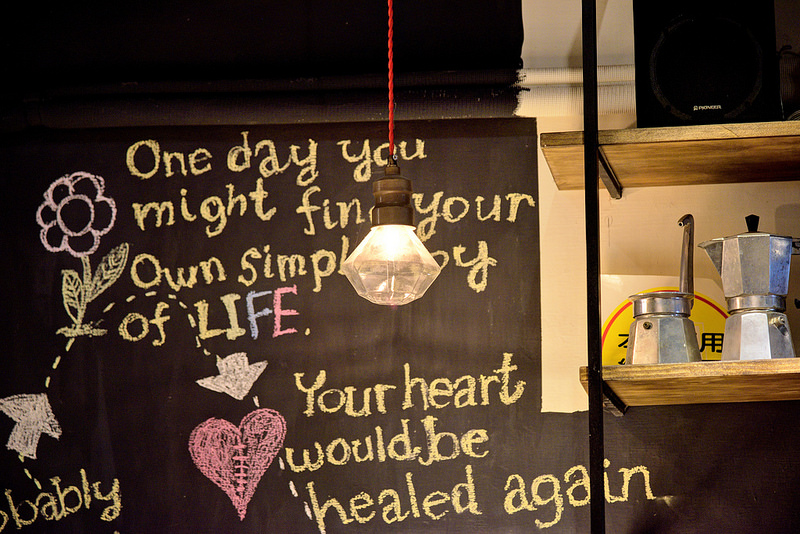 One day you
might find your
Own simple joy
of LIFE.
Your heart
would be
healed again
obably
PIONEER
用